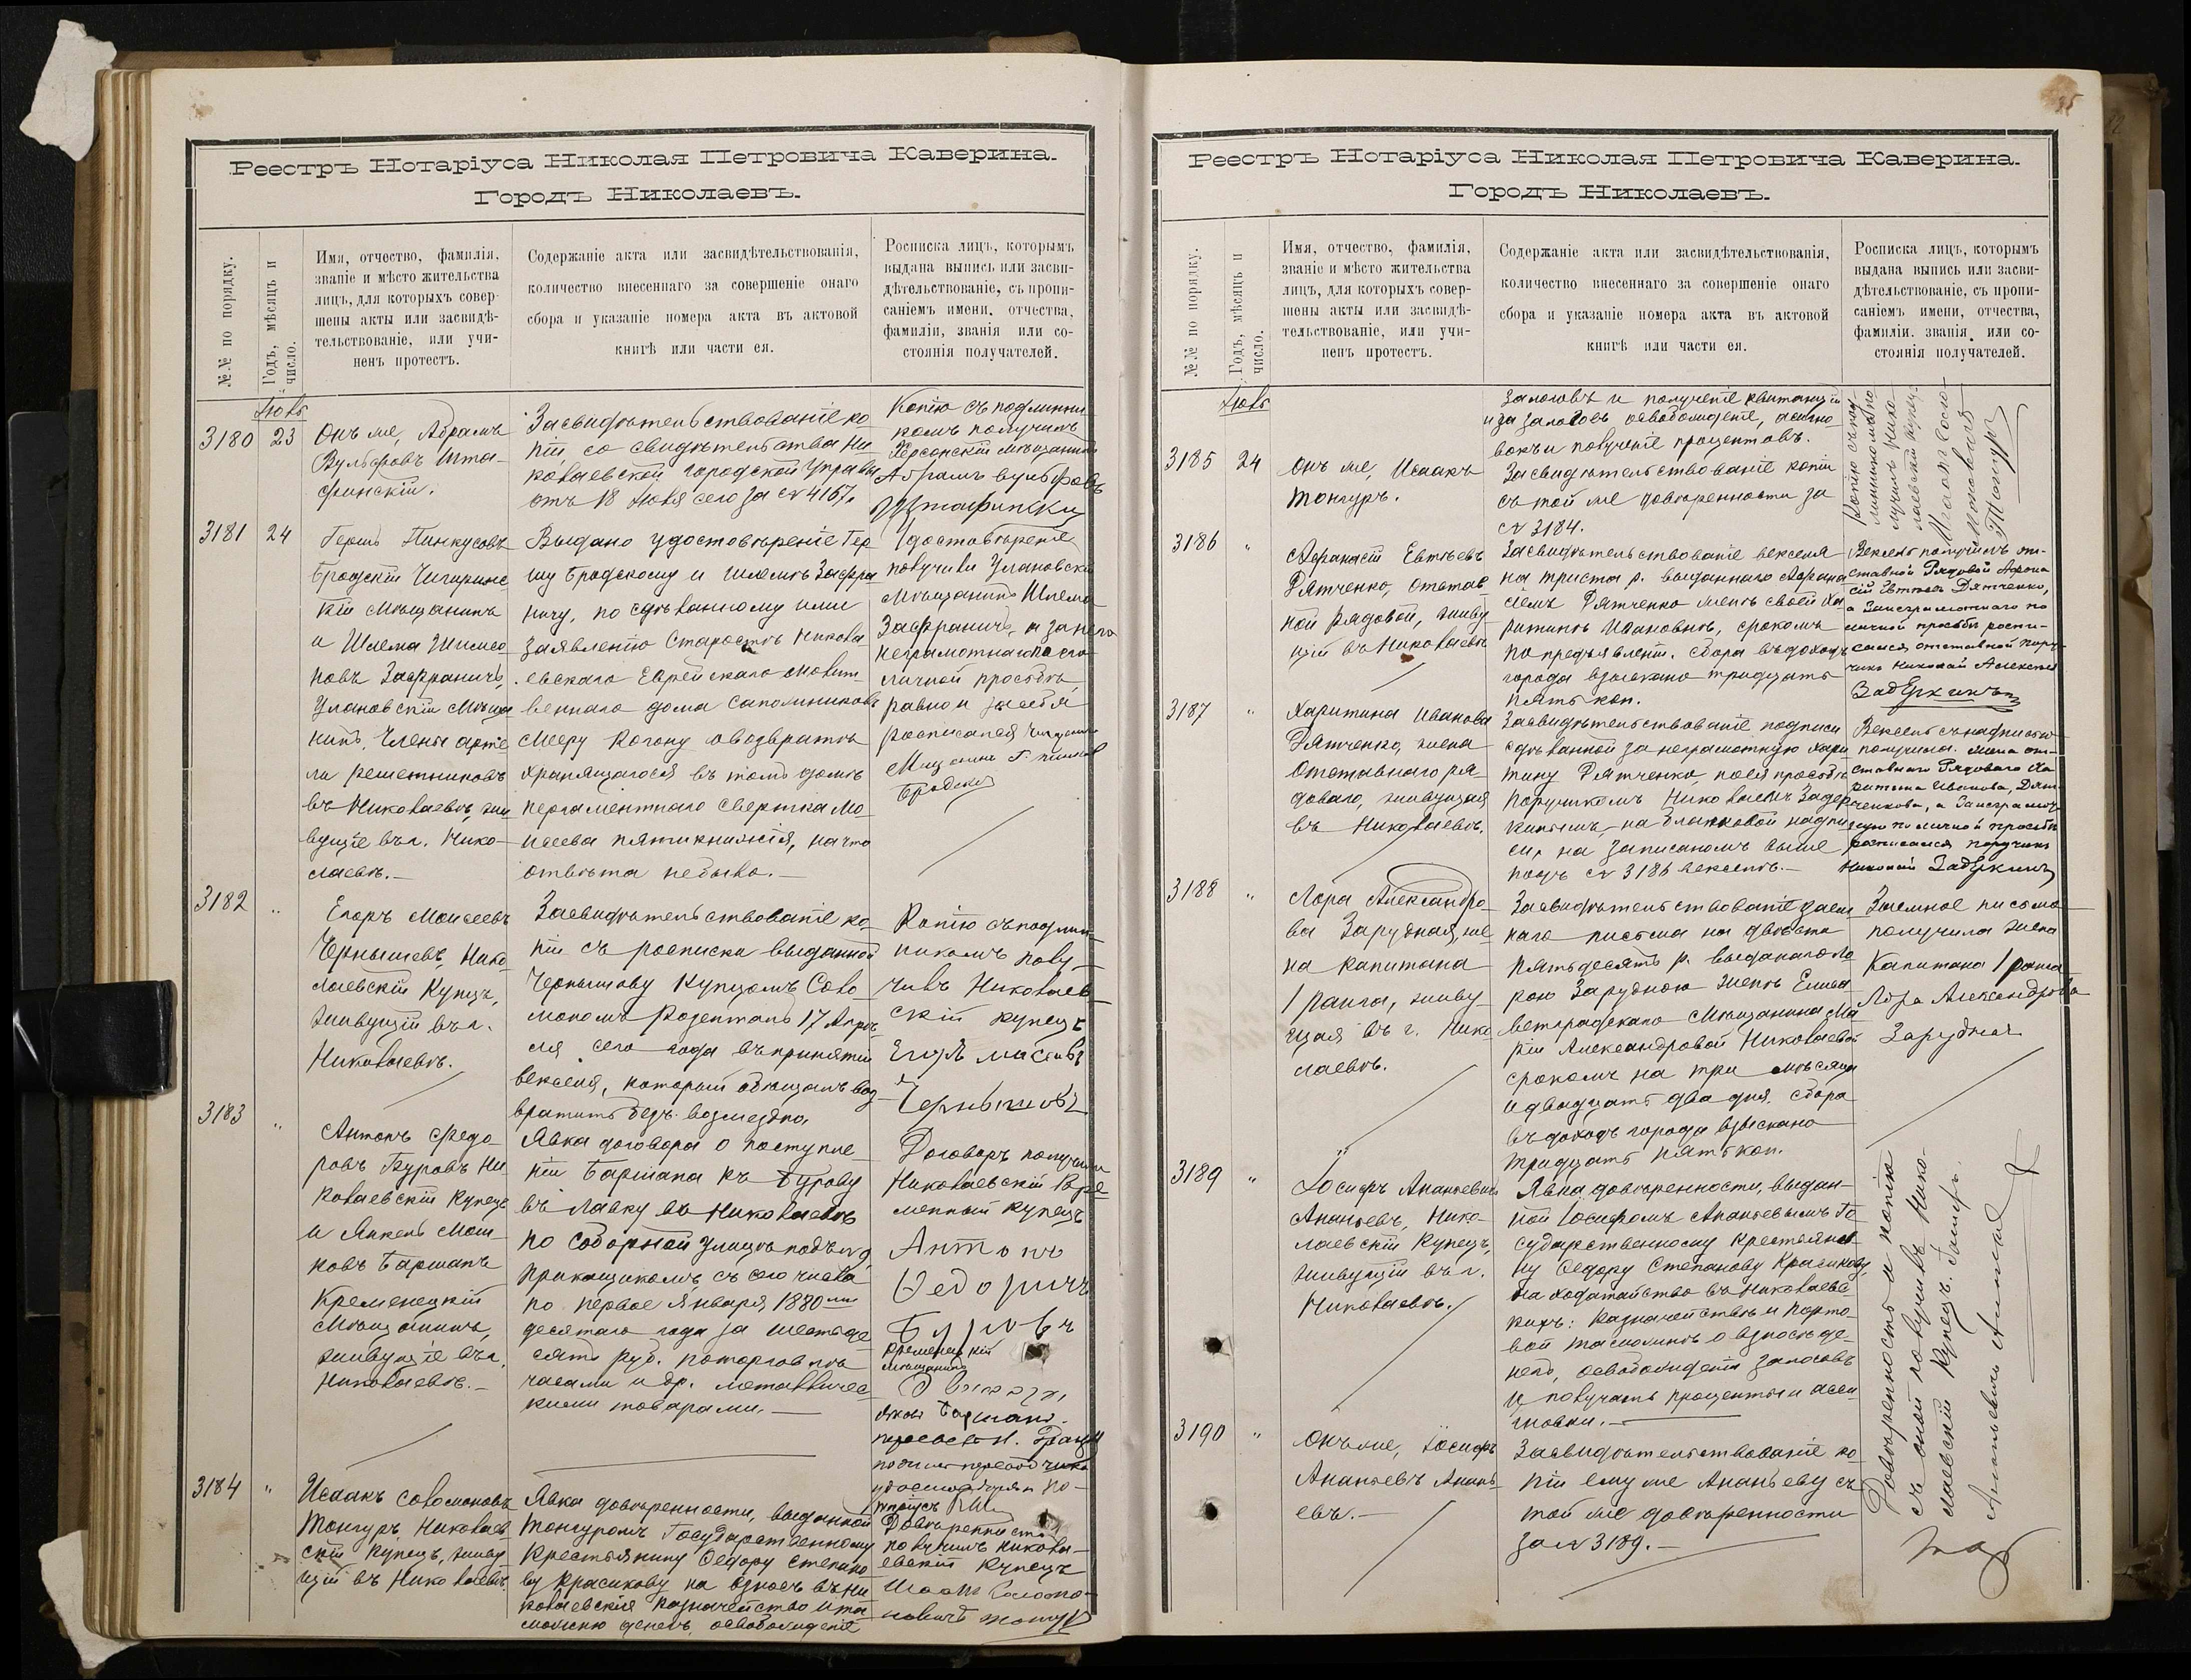 Реестръ Нотаріуса Николая Петровича Каверина.
Городъ Николаевъ.
№№ по порядку.
Годъ, мѣсяцъ и
число.
Имя, отчество, фамилія,
званіе и мѣсто жительства
лицъ, для которыхъ совер-
шены акты или засвидѣ-
тельствованіе, или учи-
ненъ протестъ.
Содержаніе акта или засвидѣтельствованія,
количество внесеннаго за совершеніе онаго
сбора и указаніе номера акта въ актовой
книгѣ или части ея.
Росписка лицъ, которымъ
выдана выпись или засви-
дѣтельствованіе, съ пропи-
саніемъ имени, отчества,
фамиліи, званія или со-
стоянія получателей.
3180 23
Онъ же, Абрамъ
Вульфовъ Шта-
финскій.
Засвидѣтельствованіе ко-
піи со свидѣтельства Ни
колаевской городской Управы
отъ 18 Іюня сего за № 4167.
Копію съ подлинни
комъ получилъ
Херсонскій мѣщанинъ
Абрамъ Вульфовъ
Штафински
3181 24
Гершъ Пинкусовъ
Бродскій Чигиринс
кій мѣщанинъ
и Шлема Шимсо
новъ Зафраничъ,
Улановскій мѣща
нинъ, члены арте
ли решетниковъ
въ Николаевѣ, жи
вущіе въ г. Нико-
лаевѣ.-
Выдано удостовѣреніе Гер
шу Бродскому и Шлемѣ Зафра
ничу, по сдѣланному ими
заявленію Старостѣ Никола
евскаго Еврейскаго молит
веннаго дома сапожниковъ
Мееру Когону о возвратѣ
хранящагося въ томъ домѣ
пергаментнаго свертка Мо
исеева пятикнижія, на что
отвѣта небыло.-
Удостовѣреніе
получили Улановскій
Мѣщанинъ Шлема
Зафраничъ, а за него
неграмотнаго по его
личной просьбѣ,
равно и за себя
росписался
Бродский
3182 "
Егоръ Моисеевъ
Чернышевъ, Нико
лаевскій Купецъ,
живущій въ г.
Николаевѣ.
Засвидѣтельствованіе ко-
піи съ росписки выданной
Чернышову Купцомъ Соло
мономъ Розенталь 17 Апрѣ
ля сего года въ принятіи
векселя, который обѣщалъ воз
вратить безъ возмездно.
Копію съ подлин
никомъ полу-
чилъ Николаев
скій купецъ
Егоръ
Чернышовъ
3183 "
Антонъ Федо-
ровъ Буровъ Ни
колаевскій Купецъ
и Янкель Мош
ковъ Баршапъ
Кременецкій
Мѣщанинъ,
живущіе въ г.
Николаевѣ.-
Явка договора о поступле-
ніи Баршапа къ Бурову
въ лавку въ Николаевѣ
по Соборной улицѣ подъ № 9
прикащикомъ, съ сего числа
по первое Января 1880
десятаго года за шестьде
сятъ руб. поторговлѣ
часами и др. металличес
кими товарами.-
Договоръ получили
Николаевскій Вре
менный купецъ
Антонъ
Буровъ
Кременецкій
мѣщанинъ
3184 "
Исаакъ Соломоновъ
Тонгуръ, Николаев
скій Купецъ, живу
щій въ Николаевѣ.
Явка довѣренности, выданной
Тонгуромъ Государственному
Крестьянину Федору Степано
ву Красикову на взносъ въ Ни
колаевскія казначейство и та
можню денегъ, освобожденіе
Довѣренность
получилъ Никола-
евскій Купецъ
Исаакъ Соломо-
новичъ Тонгуръ
Реестръ Нотаріуса Николая Петровича Каверина.
Городъ Николаевъ.
№№ по порядку.
Годъ, мѣсяцъ и
число.
Имя, отчество, фамилія,
званіе и мѣсто жительства
лицъ, для которыхъ совер-
шены акты или засвидѣ-
тельствованіе, или учи-
ненъ протестъ.
Содержаніе акта или засвидѣтельствованія,
количество внесеннаго за совершеніе онаго
сбора и указаніе номера акта въ актовой
книгѣ или части ея.
Росписка лицъ, которымъ
выдана выпись или засви-
дѣтельствованіе, съ пропи-
саніемъ имени, отчества,
фамиліи. званія, или со-
стоянія получателей.
залоговъ и полученіе квитанцій
и за залоговъ освобожденіе, ассигно-
вокъ и полученіе процентовъ.
3185 24
Онъ же, Исаакъ
Тонгуръ.
Засвидѣтельствованіе копіи
съ той же довѣренности за
№ 3184.
3186 "
Афанасій Евтѣевъ
Дятченко, отстав
ной рядовой, живу
щій въ Николаевѣ
Засвидѣтельствованіе векселя
на триста р. выданнаго Афана
сіемъ Дятченко женѣ своей Ха-
ритинѣ Ивановнѣ, срокомъ
по предъявленіи. Сбора въ доходъ
города взыскано тридцать
пять коп.
Вексель получилъ от-
ставной Рядовой Афона
сій Евтѣевъ Дятченко,
а за неграмотнаго по
личной просьбѣ роспи-
сался отставной пору-
чикъ Николай
3187 "
Харитина Иванова
Дятченко, жена
отставнаго ря-
доваго, живущая
въ Николаевѣ.
Засвидѣтельствованіе подписи
сдѣланной за неграмотную Хари
тину Дятченко, по ея просьбѣ
поручикомъ Николаемъ Задер
кинымъ, на бланковой надпи
си, на записаномъ выше
подъ № 3186 векселѣ.-
Вексель съ надписью
получила жена от-
ставнаго Рядоваго Ха
ритина Иванова, Дят-
ченкова, а за неграмот
ную по личной просьбѣ
росписался поручикъ
Николай Задеркинъ
3188 "
Лора Александро-
ва Зарудная, же-
на капитана
1 ранга, живу-
щая въ г. Нико
лаевѣ.
Засвидѣтельствованіе заем
наго письма на двѣсти
пятьдесятъ р. выданаго Ло
рою Зарудною женѣ Елиса
ветградскаго мѣщанина Ма
ріи Александровой Николаевой
срокомъ на три мѣсяца
и двадцать два дня. Сбора
въ доходъ города взыскано
тридцать пять коп.
Заемное письмо
получила жена
Капитана 1 ранга
Лора Александрова
Зарудная
3189 "
Іосифъ Ананьевичъ
Ананьевъ, Нико-
лаевскій Купецъ,
живущій въ г.
Николаевѣ.
Явка довѣренности, выдан-
ной Іосифомъ Ананьевымъ Го
сударственному крестьяни
ну Федору Степанову Красикову,
на ходатайство въ Николаевс
кихъ: Казначействѣ и Порто-
вой таможнѣ о взносѣ де-
негъ, освобожденія залоговъ
и получать проценты и асси
гновки.-
3190 "
Онъ же, Іосифъ
Ананьевъ Анань-
евъ.-
Засвидѣтельствованіе ко
піи ему же Ананьеву съ
той же довѣренности
за № 3189.-
Довѣренность и копію
съ оной получилъ Нико-
лаевскій Купецъ.